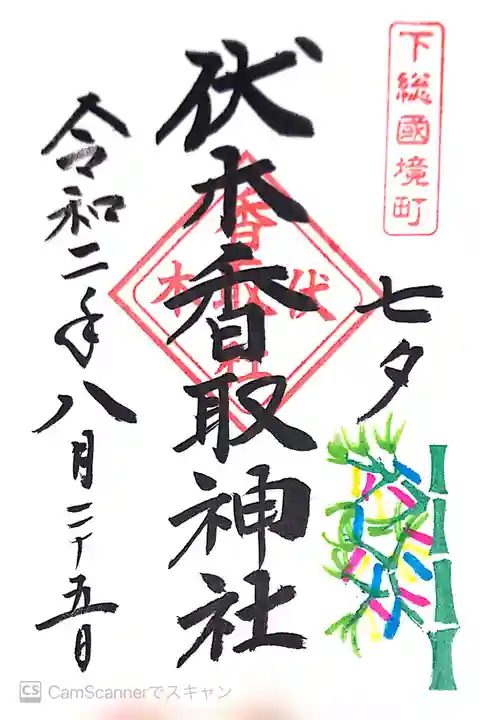 下総國境町
七夕
伏木香取神社
伏木
香取
社
令和二年八月二十五日
CS CamScannerでスキャン